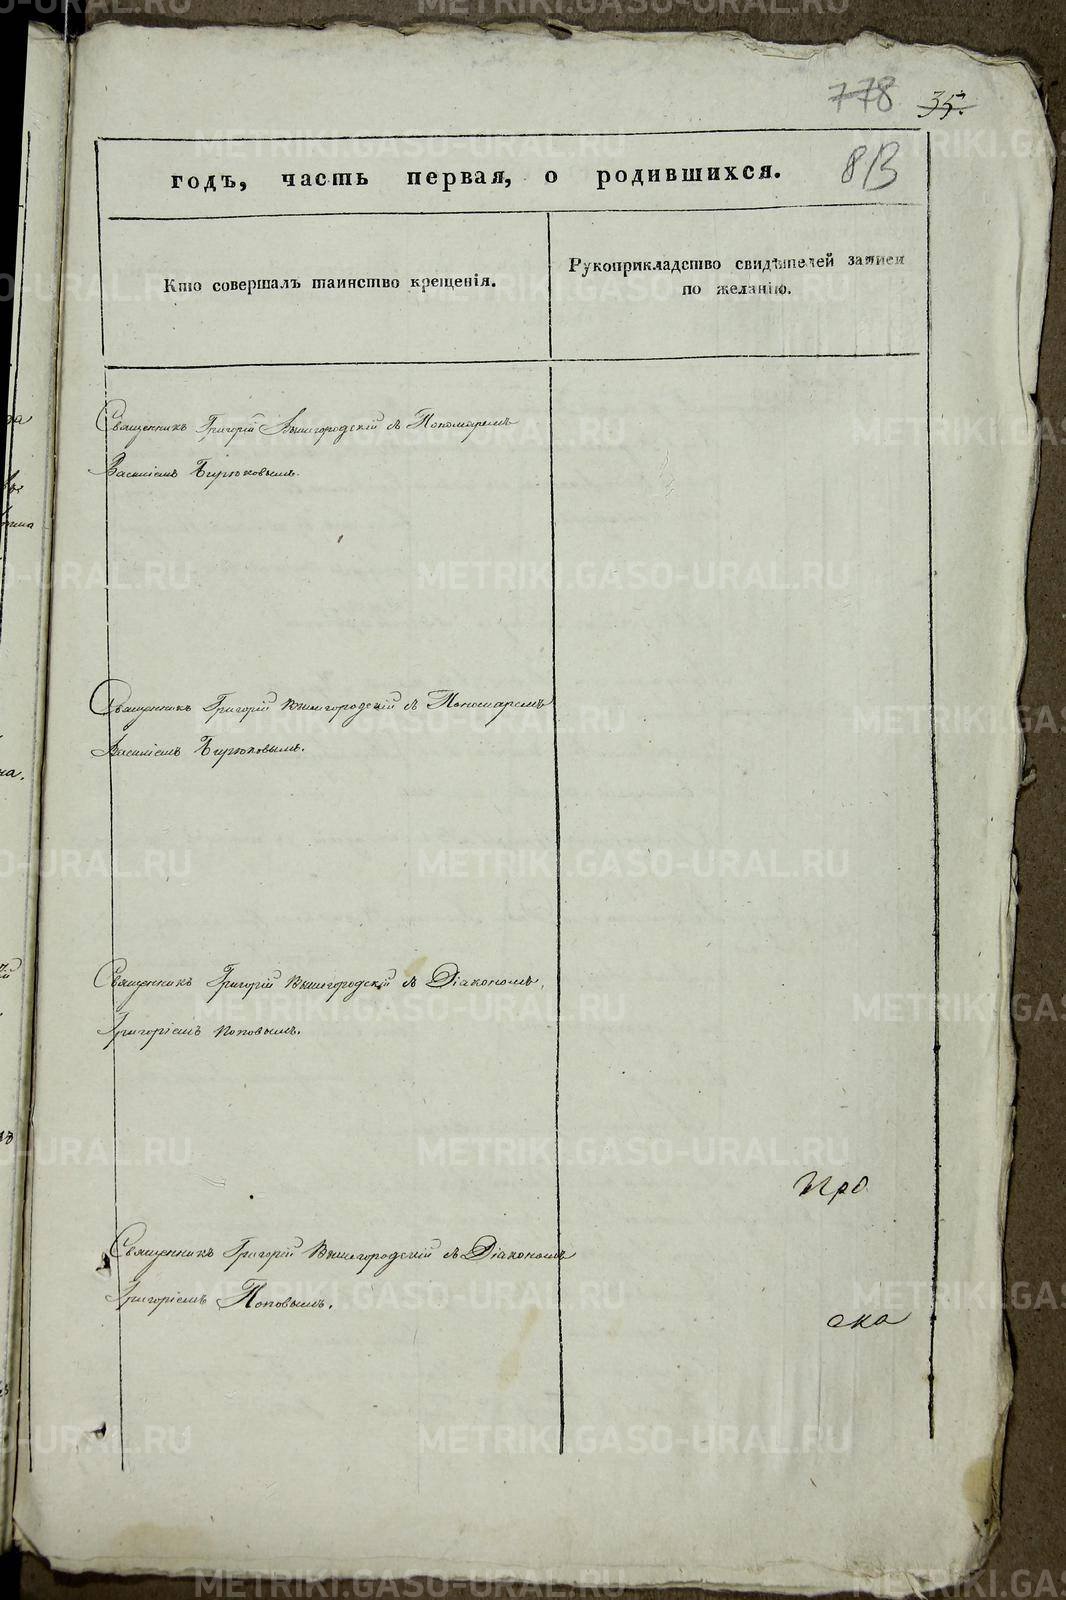 778 35.
813
годъ, часть первая, о родившихся.
Кто совершалъ таинство крещенія.
Рукоприкладство свидѣтелей записи
по желанію.
Священникъ Григорій Вышегородскій съ Пономаремъ
Василіемъ Бирюковымъ.
Священникъ Григорій Вышегородскій съ Пономаремъ
Василіемъ Бирюковымъ.
Священникъ Григорій Вышегородскій съ Діакономъ,
Григоріемъ Поповымъ.
Священникъ Григорій Вышегородскій съ Діакономъ
Григоріемъ Поповымъ.
ска
METRIKI.GASO-URAL.RU